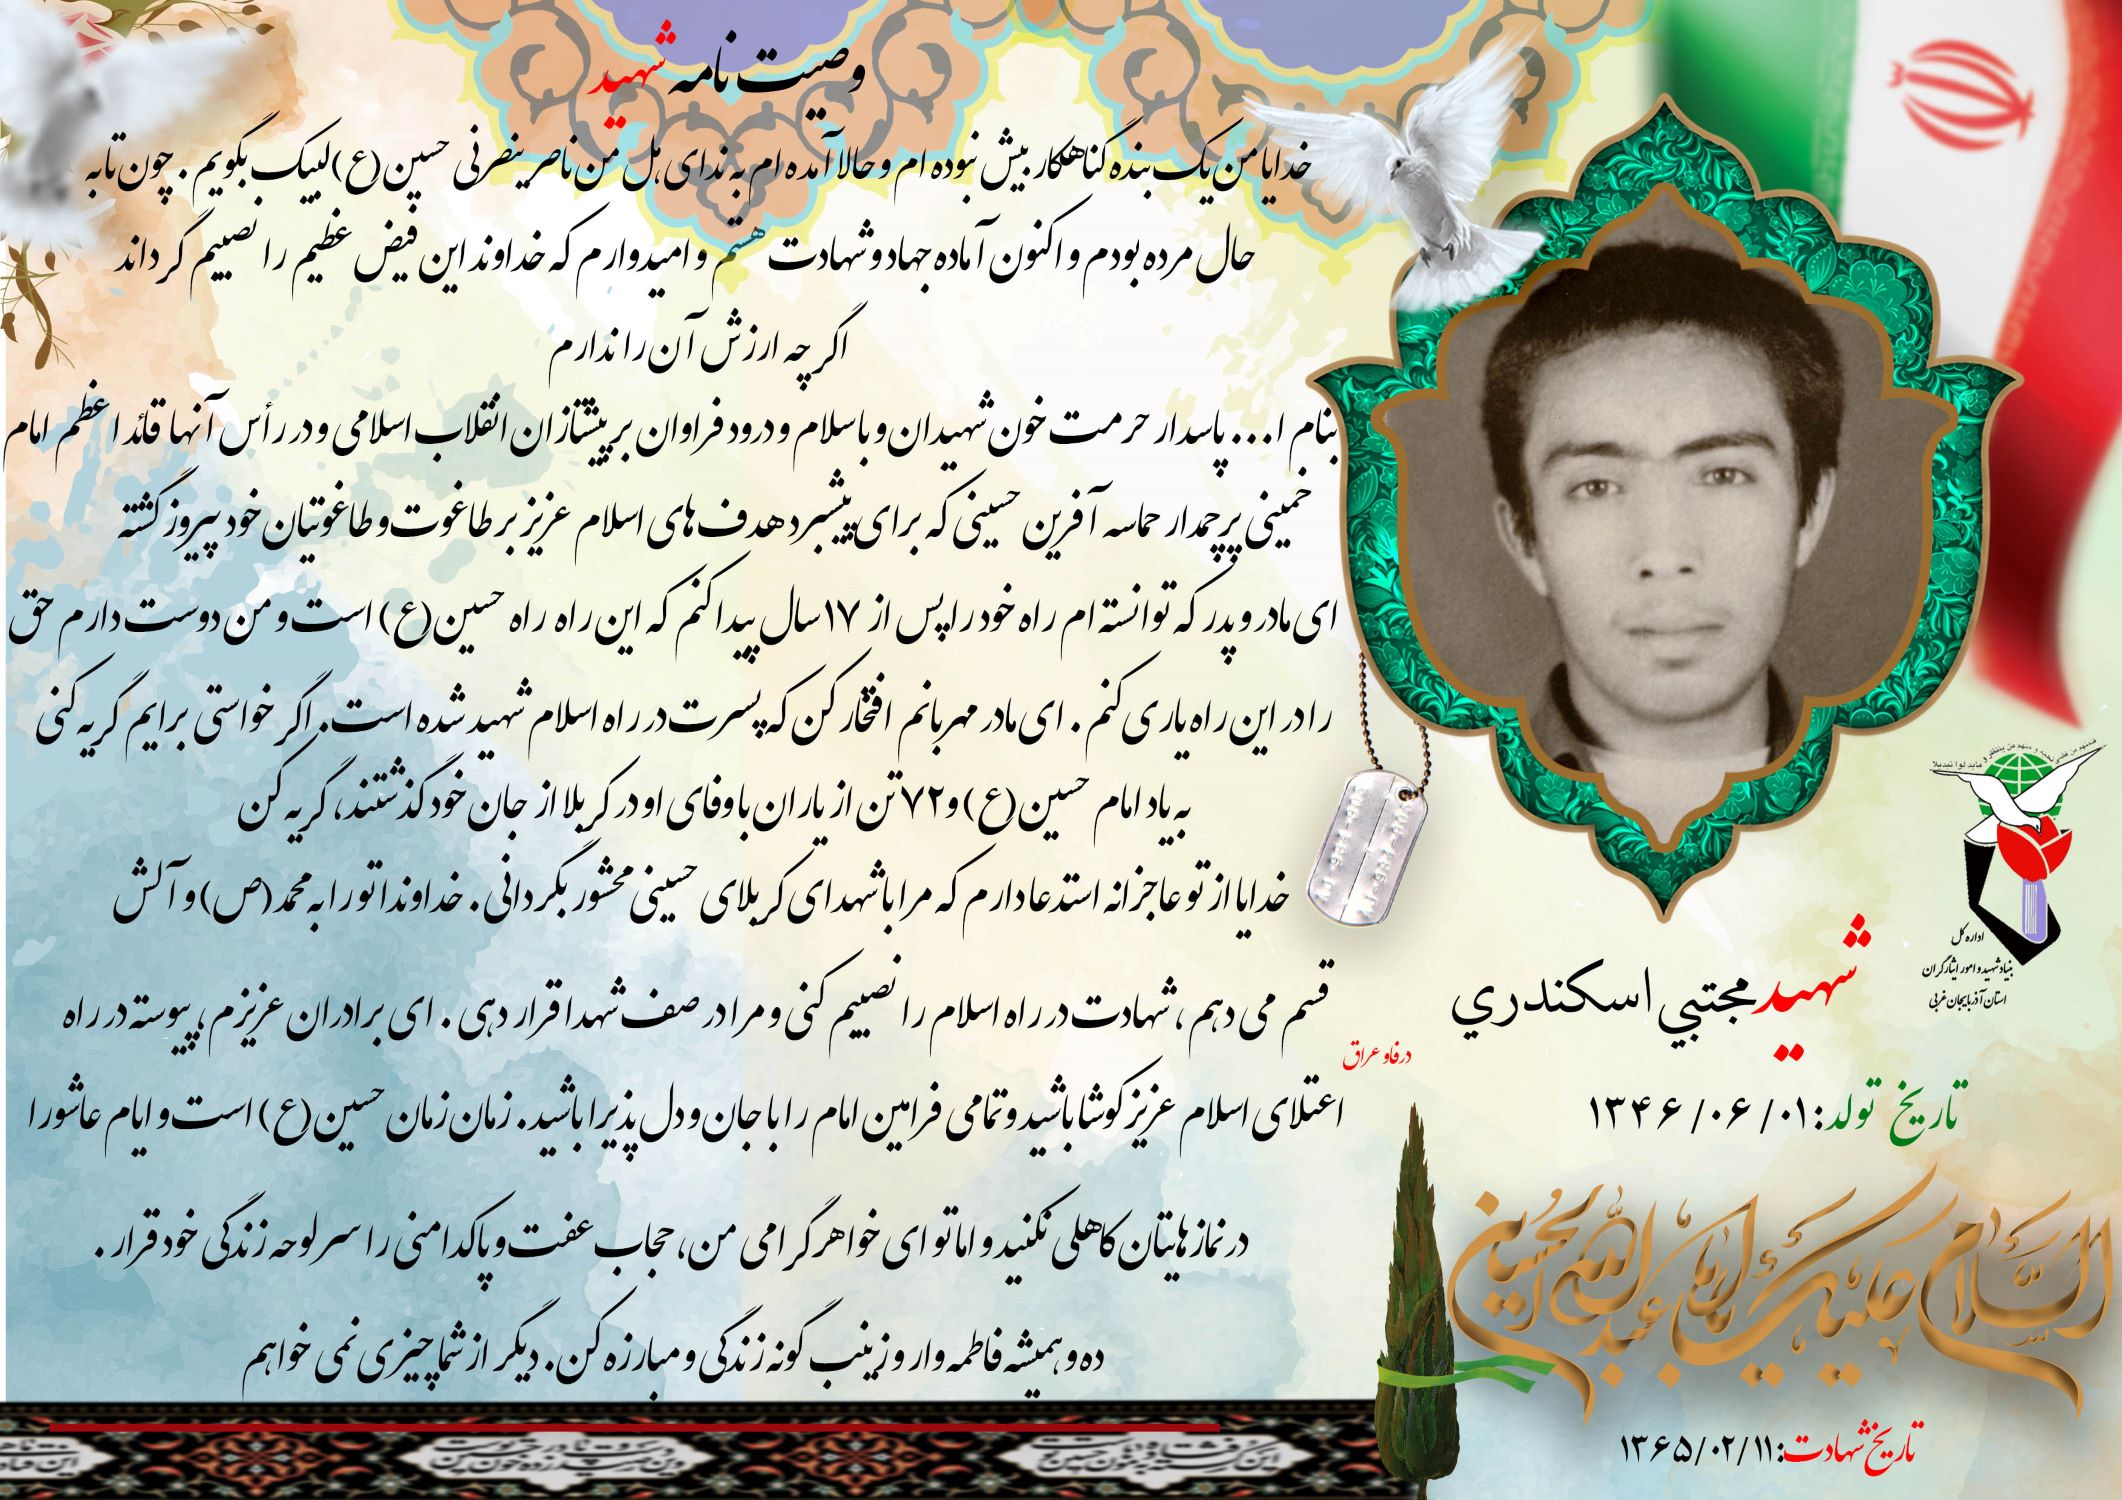 وصیت نامه شهید
خدایا من یک بنده گناهکار بیش نبوده ام و حالا آمده ام به ندای هل من ناصر ینصرنی حسین (ع) لبیک بگویم . چون تا به
حال مرده بودم و اکنون آماده جهاد و شهادت هستم و امیدوارم که خداوند این فیض عظیم را نصیبم گرداند
اگر چه ارزش آن را ندارم
بنام ا... پاسدار حرمت خون شهیدان و با سلام و درود فراوان بر پیشتازان انقلاب اسلامی و در رأس آنها قائد اعظم امام
خمینی پرچمدار حماسه آفرین حسینی که برای پیشبرد هدف های اسلام عزیز بر طاغوت و طاغوتیان خود پیروز گشته
ای مادر و پدر که توانسته ام راه خود را پس از ۱۷ سال پیدا کنم که این راه راه حسین (ع) است و من دوست دارم حق
را در این راه یاری کنم . ای مادر مهربانم افتخار کن که پسرت در راه اسلام شهید شده است. اگر خواستی برایم گریه کنی
به یاد امام حسین (ع) و ۷۲ تن از یاران باوفای او در کربلا از جان خود گذشتند، گریه کن
خدایا از تو عاجزانه استدعا دارم که مرا با شهدای کربلای حسینی محشور بگردانی . خداوندا تو را به محمد (ص) و آلش
قسم می دهم ، شهادت در راه اسلام را نصیبم کنی و مرا در صف شهدا قرار دهی . ای برادران عزیزم ، پیوسته در راه
اعتلای اسلام عزیز کوشا باشید و تمامی فرامین امام را با جان و دل پذیرا باشید . زمان زمان حسین (ع) است و ایام عاشورا
در نمازهایتان کاهلی نکنید و اما تو ای خواهر گرامی من، حجاب عفت و پاکدامنی را سرلوحه زندگی خود قرار .
ده و همیشه فاطمه وار و زینب گونه زندگی و مبارزه کن. دیگر از شما چیزی نمی خواهم
اداره کل
بنیاد شهید و امور ایثارگران
استان آذربایجان غربی
شهید مجتبي اسکندري
در فاو عراق
تاریخ تولد: ۱۳۴۶/۰۶/۰۱
السلام علیک یا ابا عبدالله الحسین
تاریخ شهادت: ۱۳۶۵/۰۲/۱۱